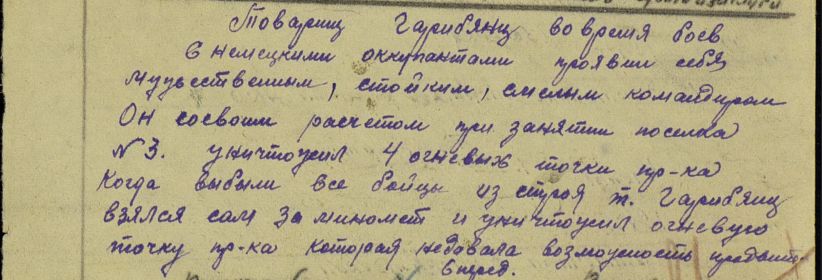 Товарищ Гарибянц во время боев
с немецкими оккупантами проявил себя
мужественным, стойким, смелым командиром
Он совоим расчетом при занятии поселка
№3. уничтожил 4 огневых точки пр-ка
Когда выбыли все бойцы из строя т. Гарибянц
взялся сам за миномет и уничтожил огневую
точку пр-ка которая недовала возможность продвиг.
вперед.